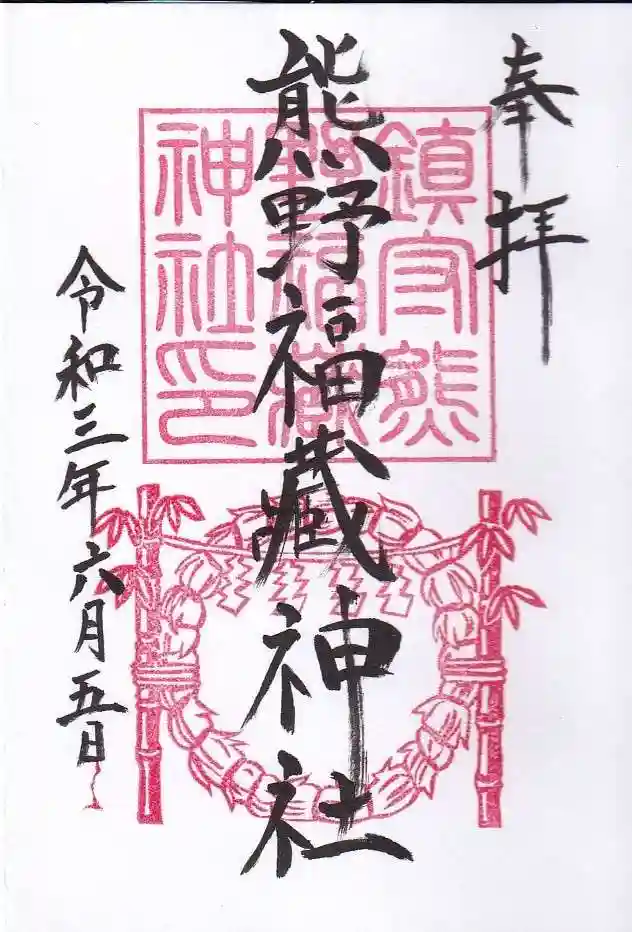 奉拝
熊野福藏神社
令和三年六月五日
鎮守熊
野福藏
神社印